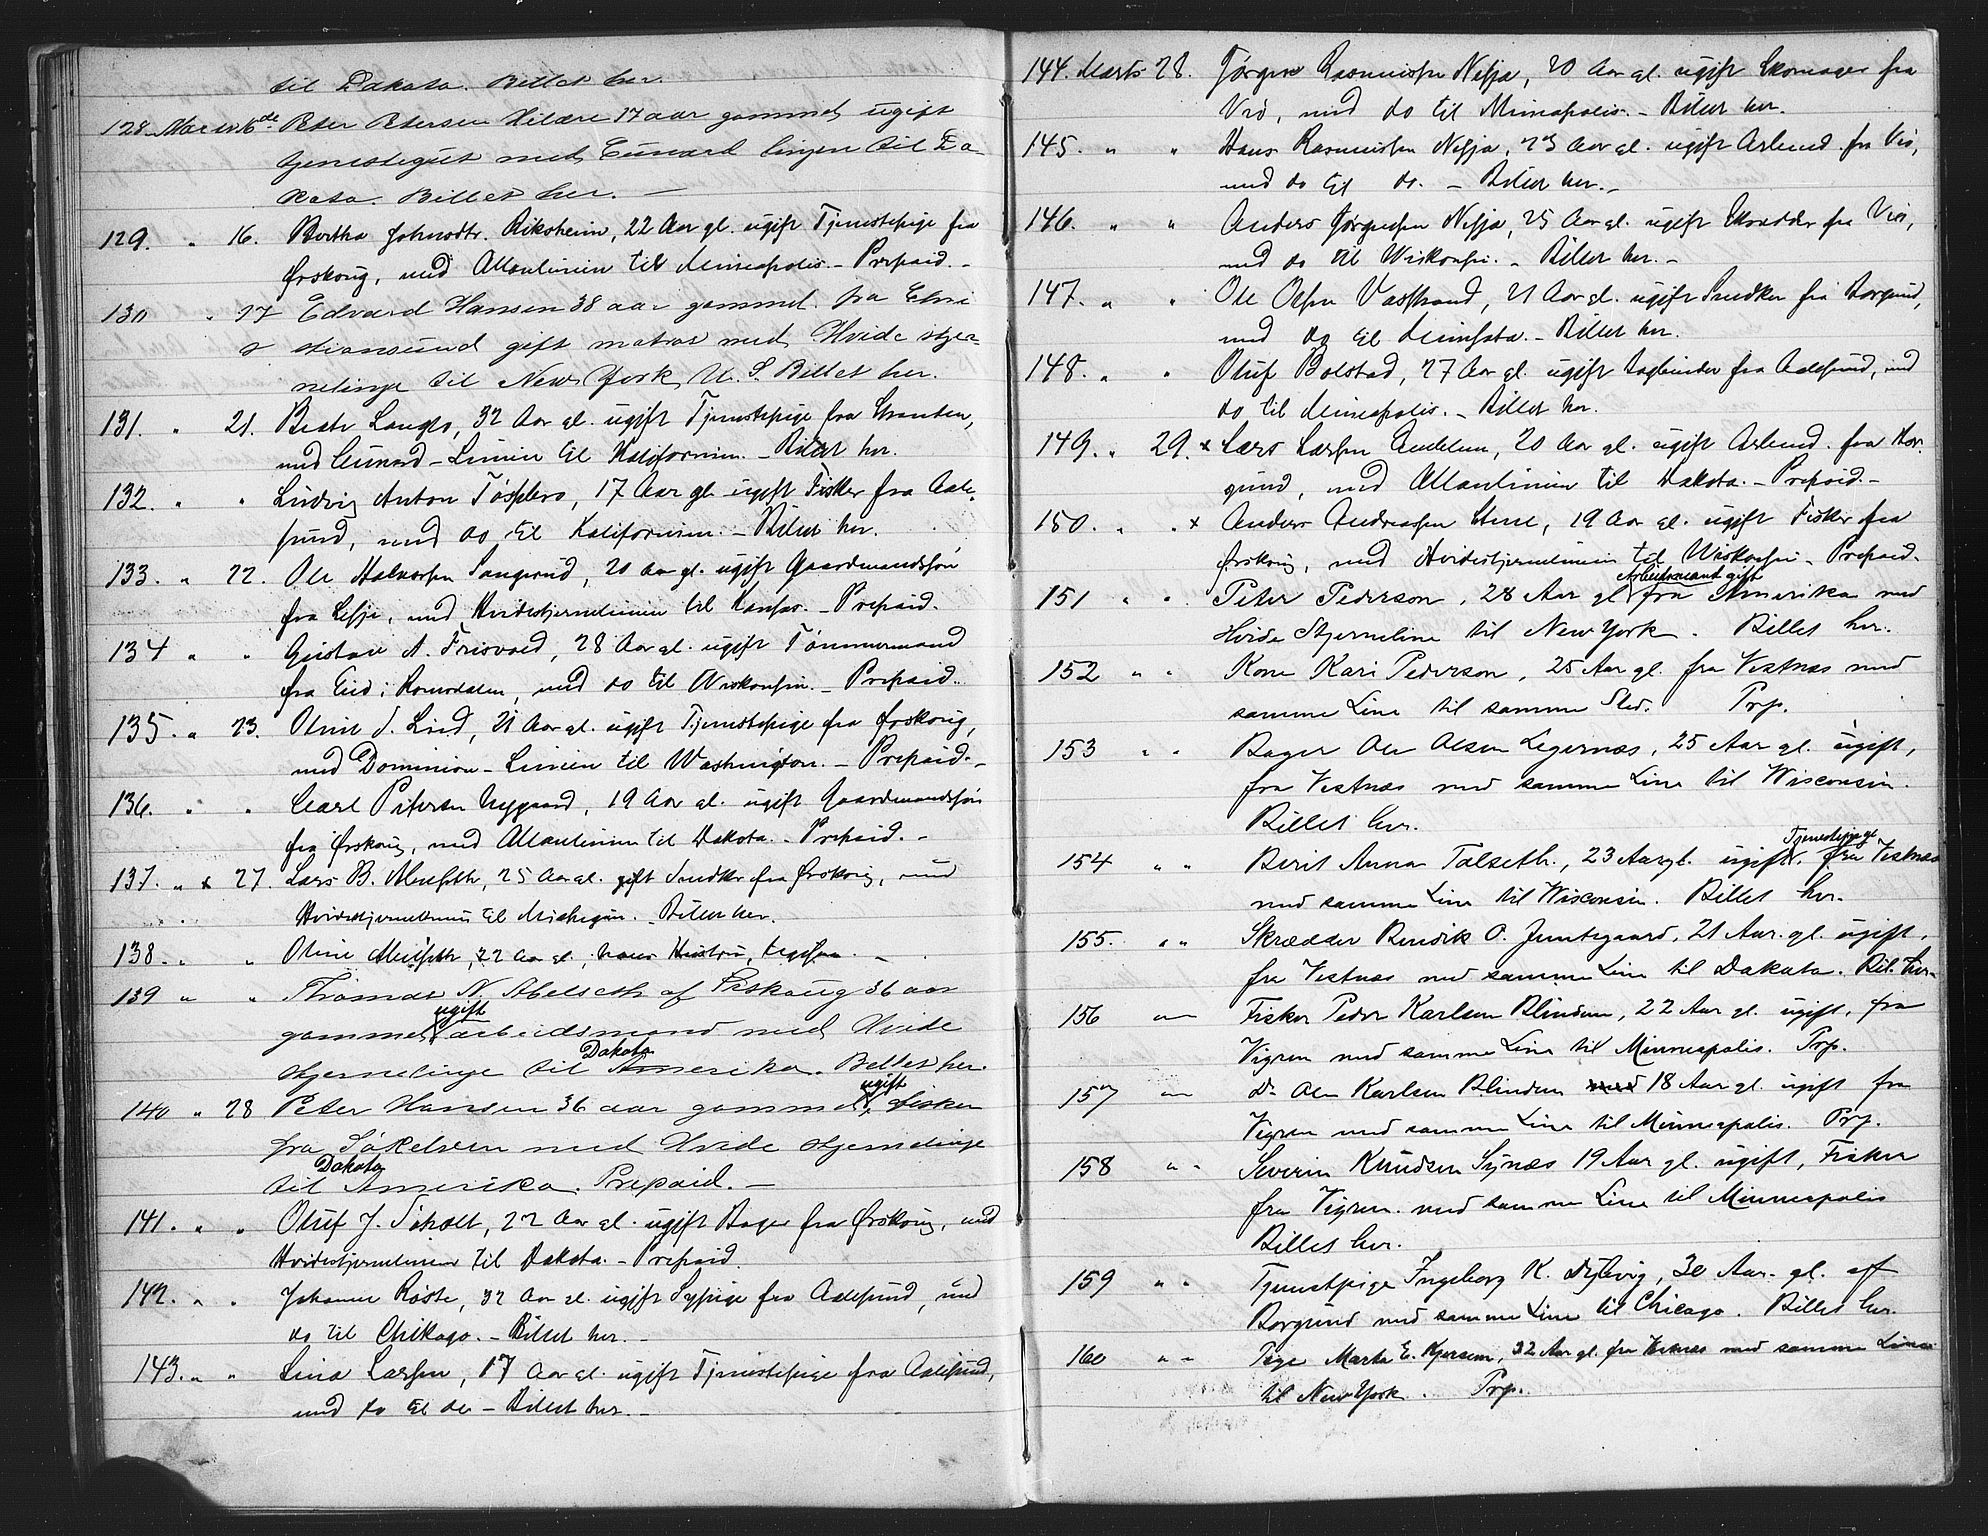 til Dakota. Billet her.
128 Marts 16de Peter Petersen 17 aar gammel ugift
tjenestegut med Cunard linjen til Da-
kota. Billet her. –
129. " 16. Bertha Johnsdtr. Riksheim, 22 Aar gl. ugift Tjenestepige fra
Ørskoug, med Allanlinien til Mineapolis. – Prepaid. –
130 " 17 Edvard Hansen 38 aar gammel fra Chri
stiansund gift matros med Hvide stjer-
nelinje til New York U. S. Billet her.
131. " 21. Beate Langlo, 32 Aar gl. ugift Tjenestepige fra Stranden,
med Cunard-Linien til Kalifornien. – Billet her.
132. " " Ludvig Anton 17 Aar gl. ugift Fisker fra Aale-
sund, med do til Kalifornien. – Billet her.
133. " 22. Ole Halvorsen 20 Aar gl. ugift Gaardmandssøn
fra Lesje, med Hvidestjernelinien til Kansas. – Prepaid.
134 " " Gustav A. Frisvold, 28 Aar gl. ugift Tømmermand
fra Eid i Romsdalen, med do til Wiskonsin. – Prepaid.
135. " 23. Oline S. Lied, 21 Aar gl. ugift Tjenestepige fra Ørskoug,
med Dominion-Linien til Washington. – Prepaid. –
136. " " Carl Petersen Nygaard, 19 Aar gl. ugift Gaardmandssøn
fra Ørskoug, med Allanlinien til Dakota. – Prepaid. –
137. " x 27. Lars B. 25 Aar gl. gift Snedker fra Ørskoug, med
Hvidestjernelinien til Michigan. – Billet her.
138. " " Oline 22 Aar gl., hans Hustru, ligesaa. –
139 " " Thomas N. Abelseth af Ørskoug 36 aar
gammel ugift arbeidsmand med Hvide
stjernelinje til Dakota Amerika. Billet her.
140 " 28 Peter Hansen 36 aar gammel, ugift fisker
fra Søkelven med Hvide stjernelinje
til Dakota Amerika. Prepaid. –
141. " " Oluf J. Søholt, 22 Aar gl. ugift Bager fra Ørskoug, med
Hvidestjernelinien til Dakota. – Prepaid.
142. " " Johanne Røste, 32 Aar gl. ugift Sypige fra Aalesund, med
do til Chikago. – Billet her. –
143. " " Lina Larsen, 17 Aar gl. ugift Tjenestepige fra Aalesund,
med do til do – Billet her. –
144. Marts 28. Jørgen Rasmussen Nesja, 20 Aar gl. ugift Skomager fra
Vio, med do til Mineapolis. – Billet her.
145. " " Hans Rasmussen Nesja, 23 Aar gl. ugift Arbmd. fra Vio,
med do til do. – Billet her. –
146. " " Anders Jørgensen Nesja, 25 Aar gl. ugift Skrædder fra Vio,
med do til Wiskonsin. – Billet her. –
147. " " Ole Olsen Vasstrand, 21 Aar gl. ugift Snedker fra Borgund,
med do til Minesota. – Billet her.
148. " " Oluf Bolstad, 27 Aar gl. ugift Bogbinder fra Aalesund, med
do til Mineapolis. – Billet her.
149. " 29. x Lars Larsen 20 Aar gl. ugift Arbmd. fra Bor-
gund, med Allanlinien til Dakota. – Prepaid. –
150. " " x Anders Andreassen 19 Aar gl. ugift Fisker fra
Ørskoug, med Hvidestjernelinien til Wiskonsin – Prepaid.
151 " " Peter Pederson, 28 Aar gl. Arbeidsmand gift fra Amerika med
Hvide Stjerneline til New York. Billet her.
152 " " Kone Kari Pederson, 25 Aar gl. fra Vestnæs med
samme Line til samme Sted. Prp.
153 " " Bager Ole Olsen Legernæs, 25 Aar gl. ugift,
fra Vestnæs med samme Line til Wisconsin.
Billet her.
154 " " Berit Anna Talseth, 23 Aar gl. ugift, Tjenestepige fra Vestnæs
med samme Line til Wisconsin. Billet her.
155. " " Skrædder Bendik O. Jentegaard, 21 Aar gl. ugift,
fra Vestnæs med samme Line til Dakota. Bil. her.
156 " " Fisker Peder Karlsen Blindem, 22 Aar gl. ugift, fra
Vigren med samme Line til Minneapolis. Prp.
157 " " Do Ole Karlsen Blindem med 18 Aar gl. ugift fra
Vigren med samme Line til Minneapolis. Prp.
158 " " Severin Knudsen Synæs 19 Aar gl. ugift, Fisker
fra Vigren med samme Line til Minneapolis
Billet her.
159 " " Tjenestpige Ingeborg K. Dybvig, 30 Aar. gl. af
Borgund med samme Line til Chicago. Billet her.
160 " " Pige Marta E. Kjersem, 32 Aar gl. fra Vestnæs med samme Line
til New York. Prp.